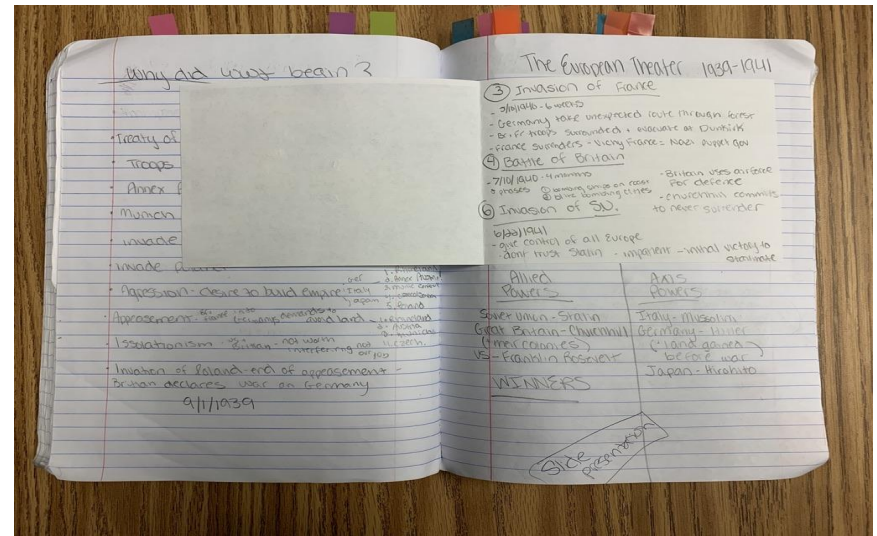 Why did WWII begin?
Treaty of
Troops
Annex
Munich
invade
invade Poland
Agression - desire to build empire
Appeasement -
avoid land
Issolationism - not worth
interfering
Invation of Poland - end of appeasement -
Britian declares war on Germany
9/1/1939
The European Theater 1939-1941
③ Invasion of France
- 5/10/1940 - 6 weeks
- Germany take unexpected route through forest
- Br. + Fr troops surrounded + evacuate at Dunkirk
- France surrenders - Vichy France - Nazi puppet gov
④ Battle of Britain
- 7/10/1940 - 4 months
- Britain uses airforce
for defence
- churchill commits
to never surrender
⑥ Invasion of S.U.
6/22/1941
- give control of all Europe
- dont trust Stalin - impatient - initial victory to
stalemate
Allied
Powers
Soviet Union - Stalin
Great Britain - Churchill
(+ their colonies)
US - Franklin Rosevelt
WINNERS
Axis
Powers
Italy - Mussolini
Germany - Hitler
(+ land gained
before war)
Japan - Hirohito
Slide
presentation